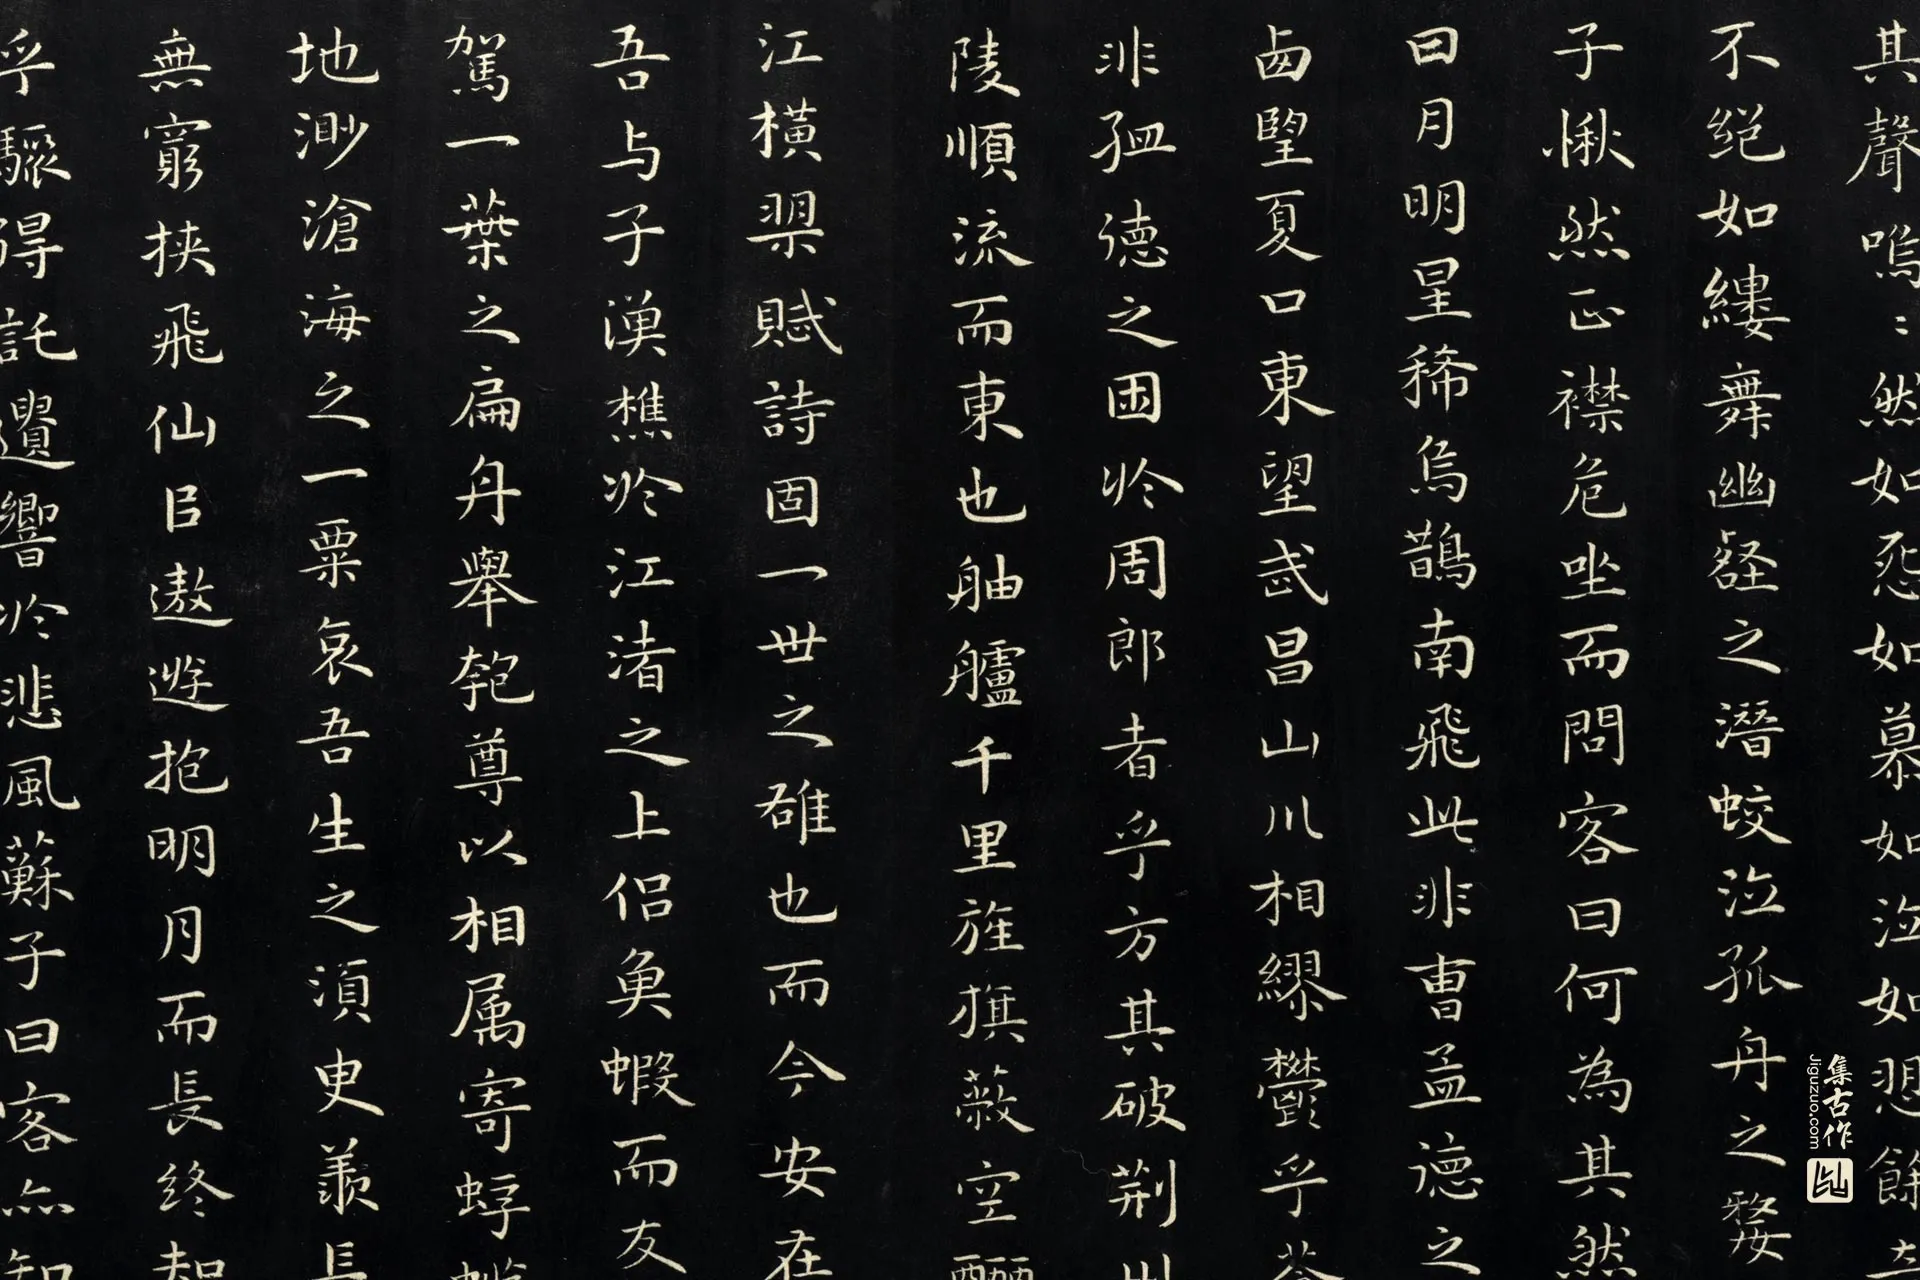 其聲嗚〻然如怨如慕如泣如愬餘
不绝如縷舞幽壑之潛蛟泣孤舟之嫠
子愀然正襟危坐而問客曰何為其然
曰月明星稀烏鵲南飛此非曹孟德之
西望夏口東望武昌山川相繆鬱乎蒼
非孟德之困於周郎者乎方其破荆州
陵順流而東也舳艫千里旌旗蔽空釃
江橫槊賦詩固一世之雄也而今安在
吾与子漁樵於江渚之上侣魚蝦而友
駕一葉之扁舟舉匏尊以相属寄蜉蝣
地渺滄海之一粟哀吾生之須臾羨長
無窮挟飛仙以遨遊抱明月而長终知
乎驟得託遺響於悲風蘇子曰客亦知
集古作
Jiguzuo.com